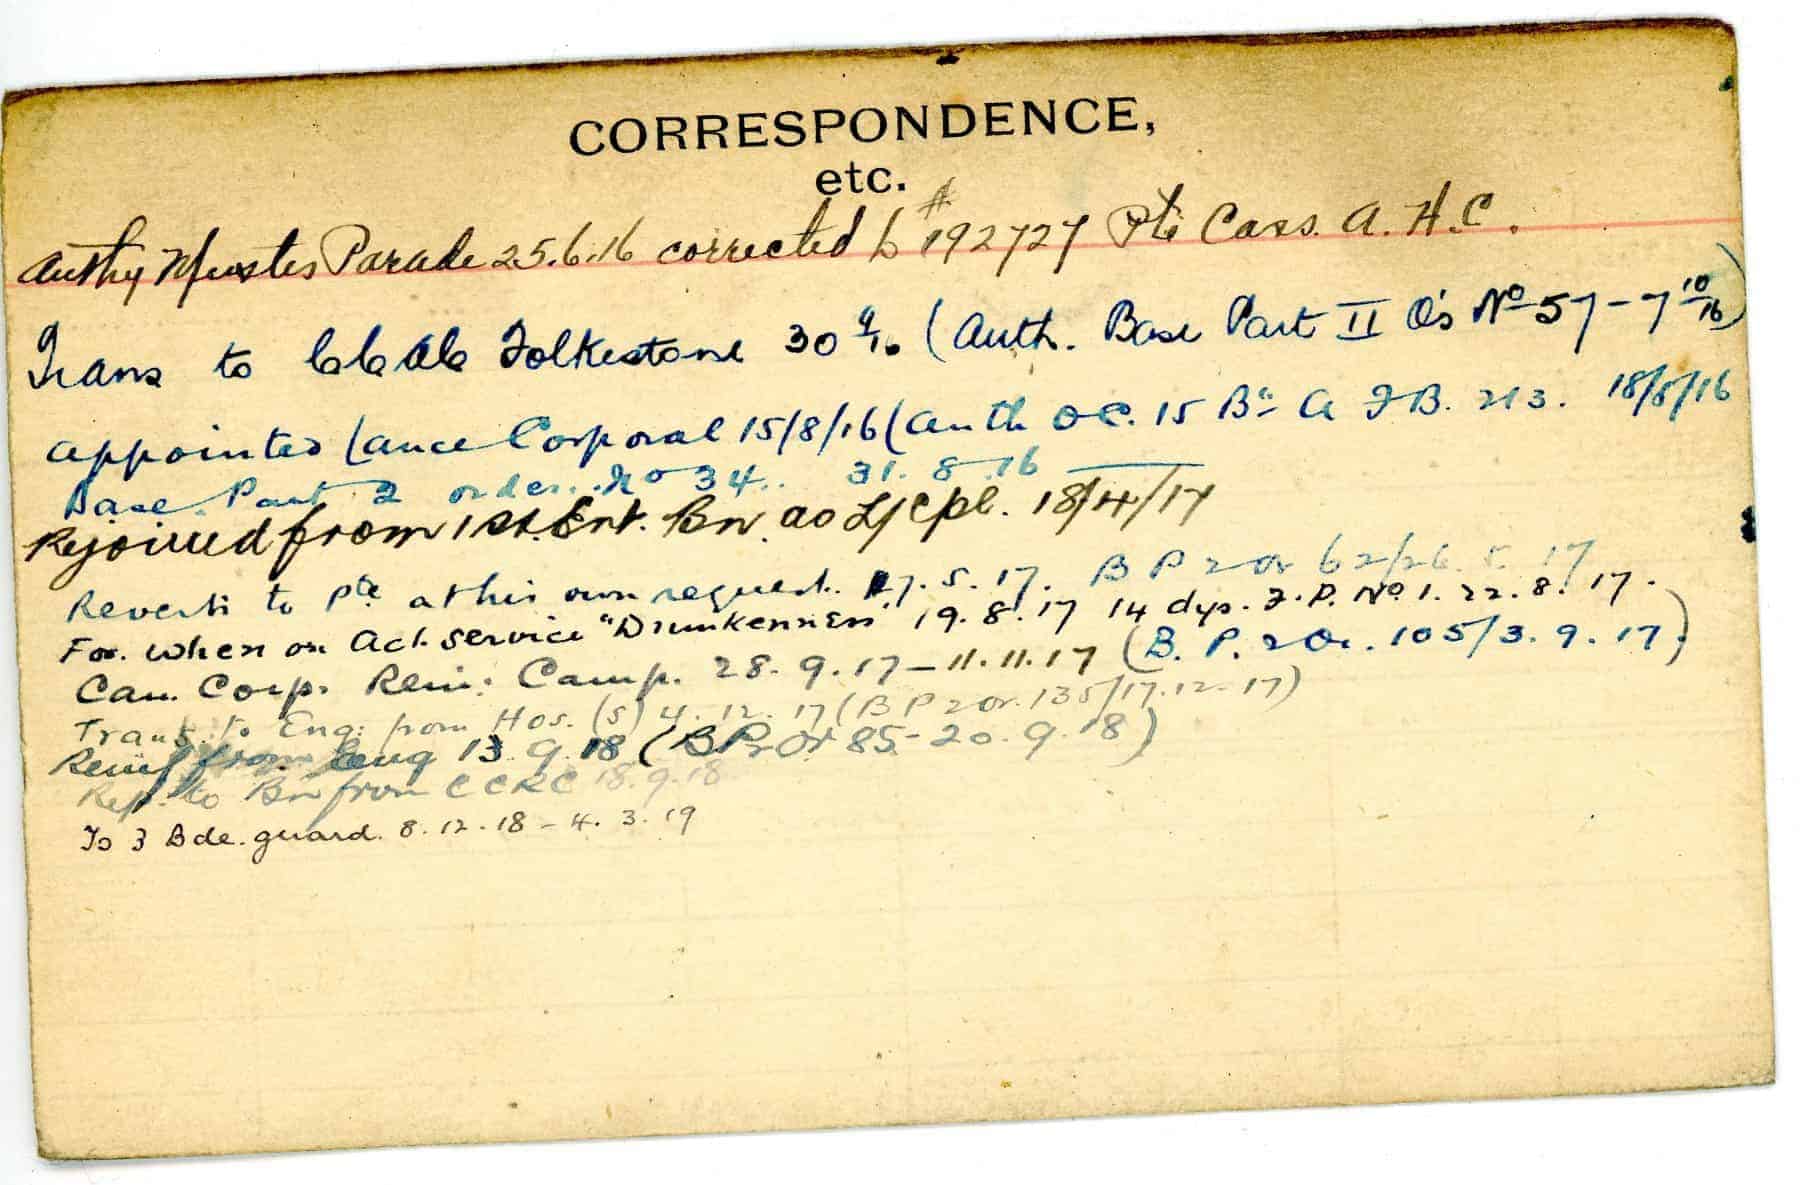 CORRESPONDENCE,
etc.
Authy Muster Parade 25.6.16 corrected to #192727 Pte Cass. A. H. C.
Trans to CCAC Folkestone 30 9/16 (Auth. Base Part II O's No 57 - 7 10/16)
appointed Lance Corporal 15/8/16 (Auth OC. 15 Bn A F B. 213. 18/8/16
Base Part 2 order. No 34. 31. 8. 16
Rejoined from 1st. Ent. Bn. as L/Cpl. 18/4/17
Reverts to Pte at his own request. 17. 5. 17. B P 2 Or 62/26. 5. 17
For. when on Act. service "Drunkenness" 19. 8. 17 14 dys. F. P. No 1. 22. 8. 17.
(B. P. 2 Or. 105/3. 9. 17)
Can. Corp. Rein: Camp. 28. 9. 17 - 11. 11. 17
Trans. to Eng: from Hos. (S) 4. 12. 17 (B P 2 Or. 135/17. 12. 17)
Reinf from Eng 13. 9. 18 (B P 2 Or 85 - 20. 9. 18)
Rep. to Bn from C C R C 18. 9. 18
To 3 Bde. guard. 8. 12. 18 - 4. 3. 19